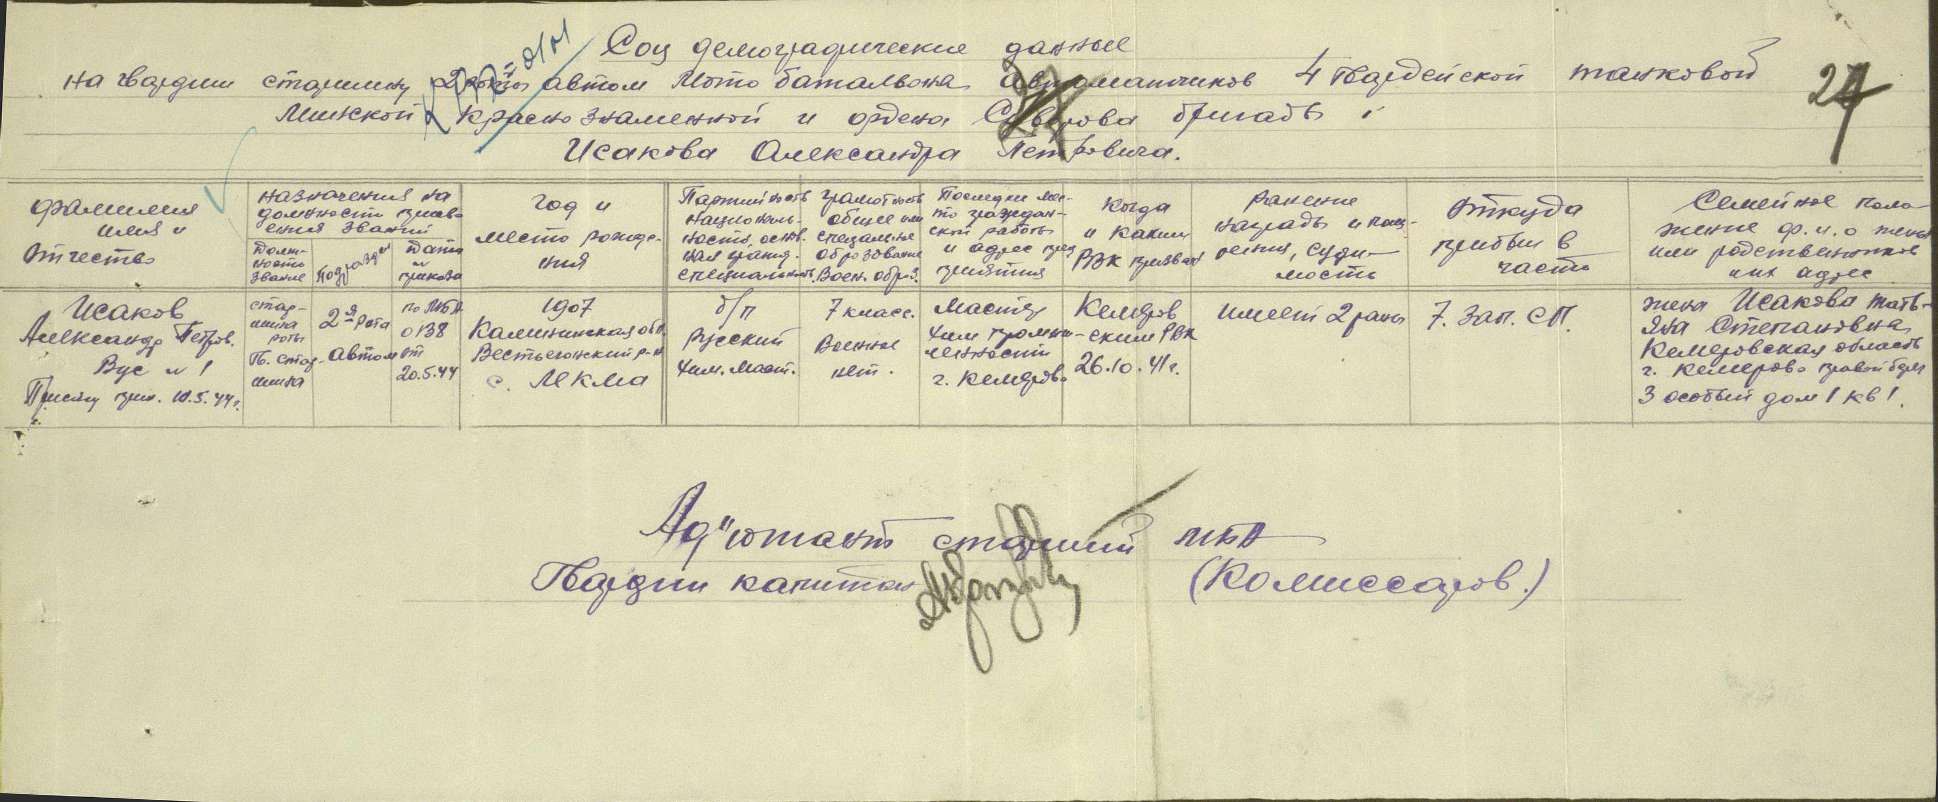 Соц демографические данные
на гвардии старшину 2 роты автом Мото батальона автоматчиков 4 Гвардейской танковой
Минской Краснознаменной и ордена Суворова бригады
Исакова Александра Петровича.
24
фамилия имя и отчество
назначения на должности присвоения званий
Должность звание
Подразден
Дата и приказа
год и место рождения
Партийность национальность, основная гражд. специальность
грамотность общее или специальное образование Воен. образ.
Последнее место гражданской работы и адрес предприятия
Когда и каким РВК призван
Ранение награды и поощрения, судимость
Откуда прибыл в часть
Семейное положение ф.и.о жены или родственников и их адрес
Исаков
Александр Петров.
Вус № 1
Присягу прин. 10.5.44г.
старшина роты
Гв. старшина
2-я рота
автом
по МБА
0138
от
20.5.44
1907
Калининская обл.
Весьегонский р-н
с. Лекма
б/п
Русский
Хим. маст.
7 класс.
Военное
нет.
Мастер
Хим промышленности
г. Кемерово
Кемеровским РВК
26.10.41г.
имеет 2 раны
7. Зап. СП.
жена Исакова Татьяна Степановна
Кемеровская область
г. Кемерово правый берег
3 особый дом 1 кв 1.
Ад"ютант старший МБА
Гвардии капитан
(Комиссаров.)